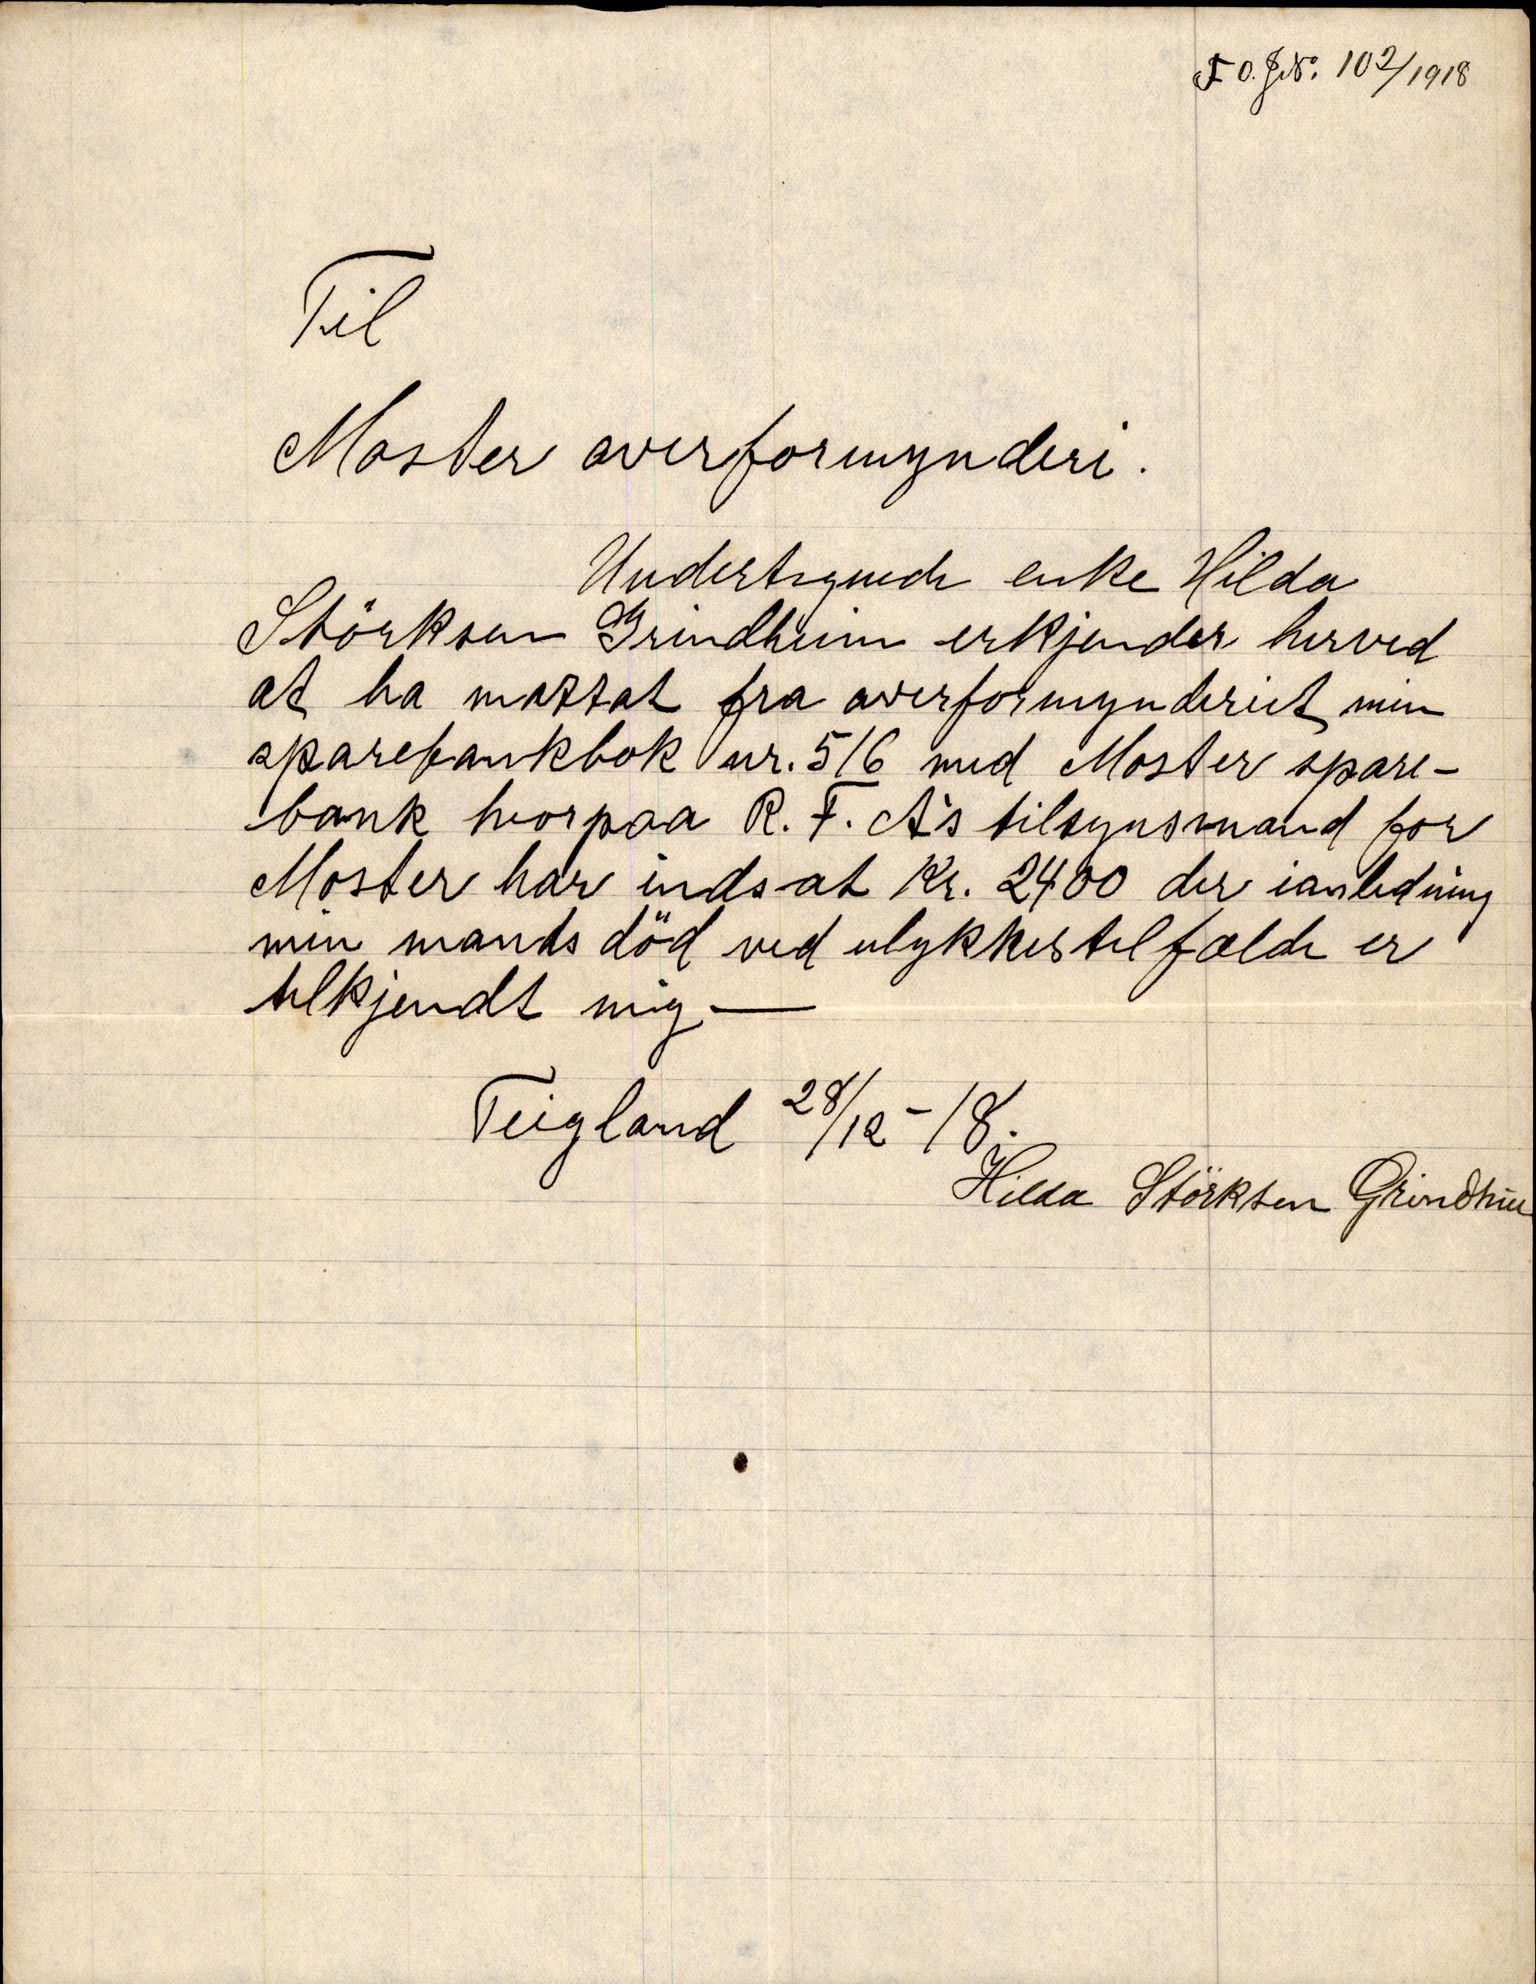 F O. J.No. 102/1918
Til
Moster overformynderi.
Undertegnede enke Hilda
Störksen Grindheim erkjender herved
at ha mottat fra overformynderiet min
sparebankbok nr. 516 med Moster spare-
bank hvorpaa R. F. A's tilsynsmand for
Moster har indsat Kr. 2400 der ianledning
min mands död ved ulykkestilfælde er
tilkjendt mig —
Teigland 28/12 - 18.
Hilda Störksen Grindheim